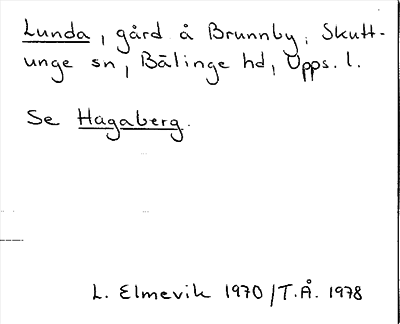 Lunda, gård å Brunnby, Skutt-
unge sn, Bälinge hd, Upps. l.
Se Hagaberg.
L. Elmevik 1970/T.Å. 1978